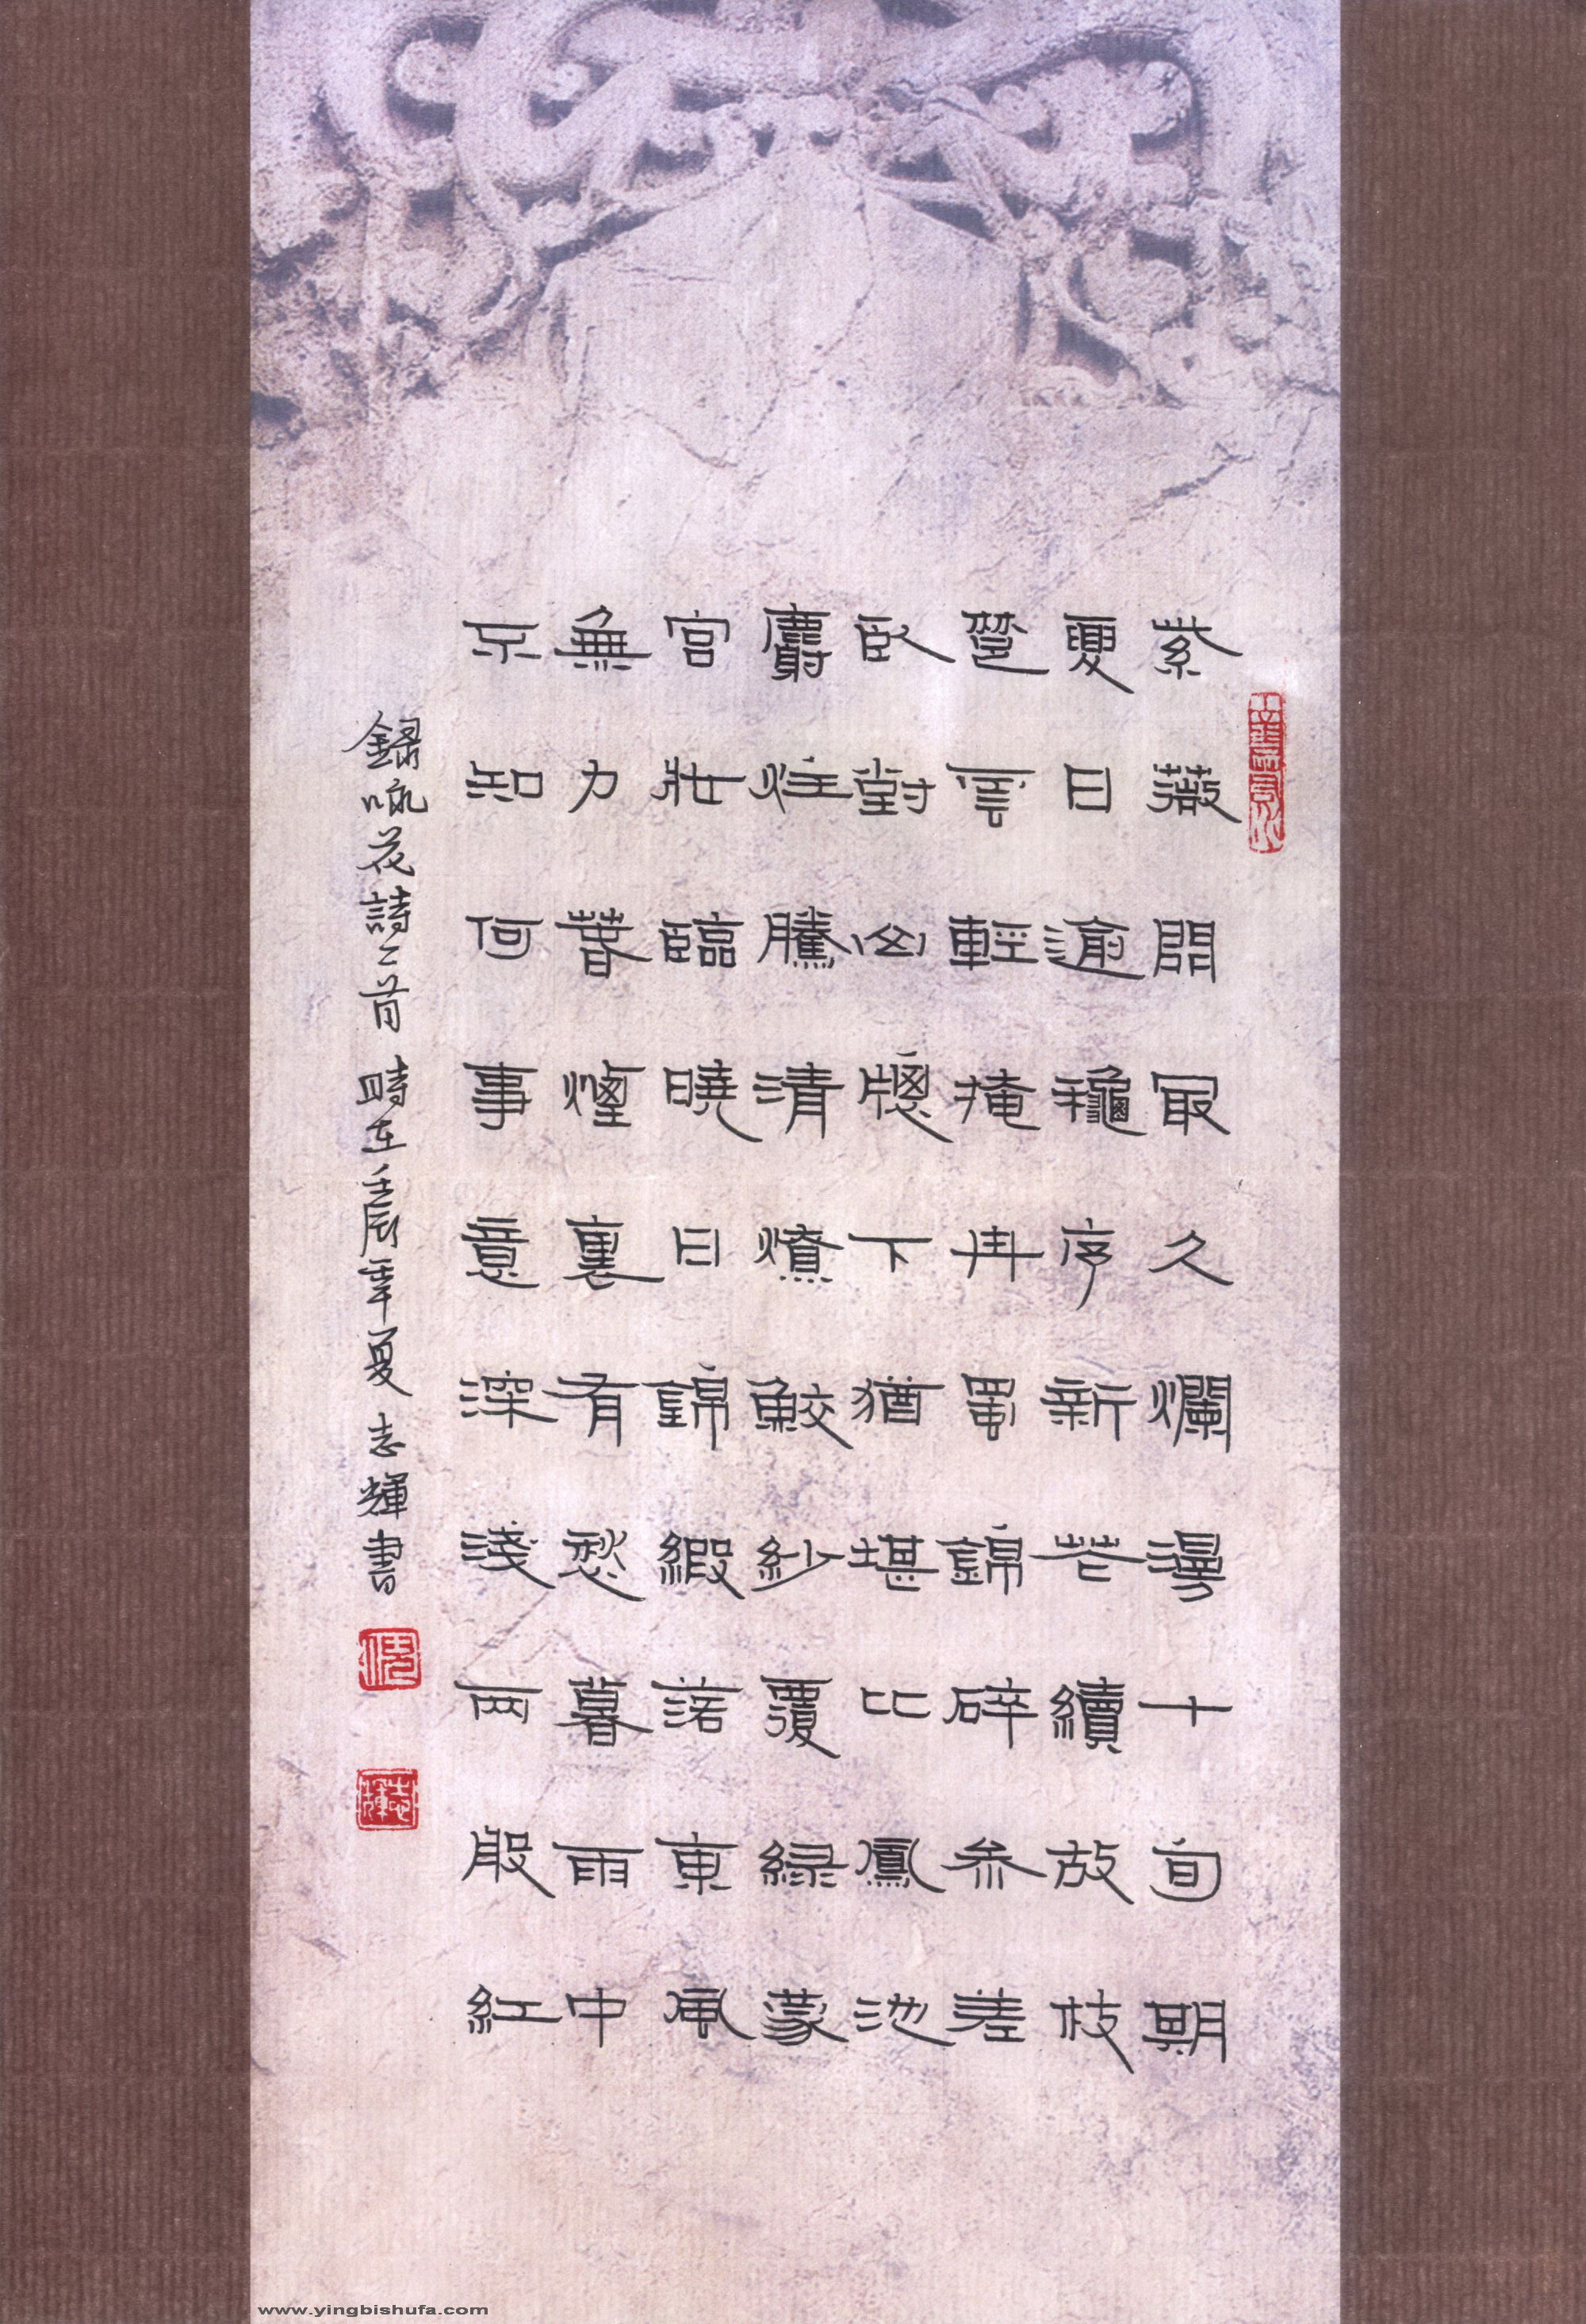 紫薇開最久爛漫十旬期
夏日逾龝序新花續故枝
楚雲輕掩冉蜀錦碎參差
臥對山牕下猶堪比鳳池
麝炷騰清燎鮫紗覆綠蒙
宮妝臨曉日錦緞落東風
無力春煙裏有愁暮雨中
不知何事意深淺兩般紅
錄咏花詩二首 時在壬辰年夏 志輝書
志輝
www.yingbishufa.com